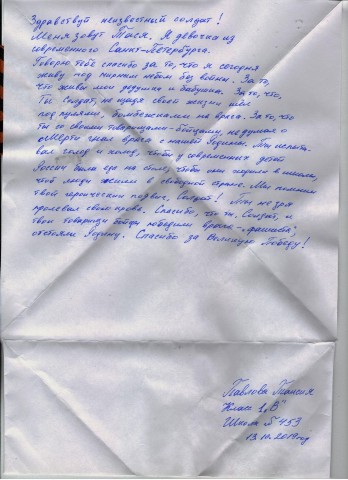 Здравствуй неизвестный солдат!
Меня зовут Тася. Я девочка из
современного Санкт-Петербурга.
Говорю тебе спасибо за то, что я сегодня
живу под мирным небом без войны. За то,
что живы мои дедушка и бабушка. За то, что,
Ты Солдат, не щадя своей жизни шёл
под пулями, бомбёжками на врага. За то, что
ты со своими товарищами-бойцами, не думая о
смерти гнал врага с нашей Родины. Ты испыты-
вал голод и холод, чтобы у современных детей
России была еда на столе, чтобы они ходили в школу,
чтоб люди жили в свободной стране. Мы помним
твой героический подвиг, Солдат! Ты не зря
проливал свою кровь. Спасибо, что ты, Солдат, и
твои товарищи бойцы победили врага-"фашиста",
отстояли Родину. Спасибо за Великую Победу!
Павлова Таисия
Класс 1 "В"
Школа № 453
13.10.2019 год